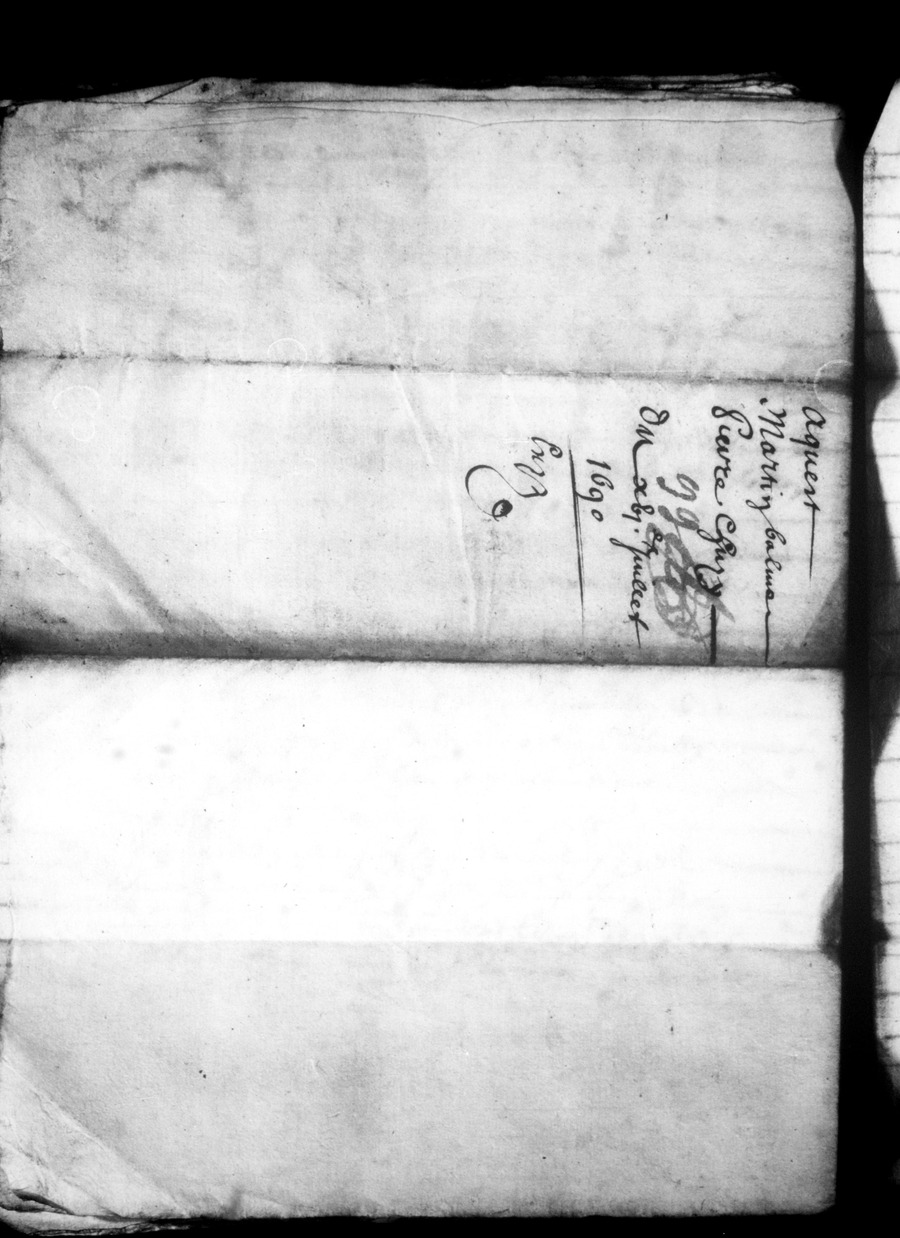 aquest
Martin balma
Pierre
99
Du xbj. Juillet
1690